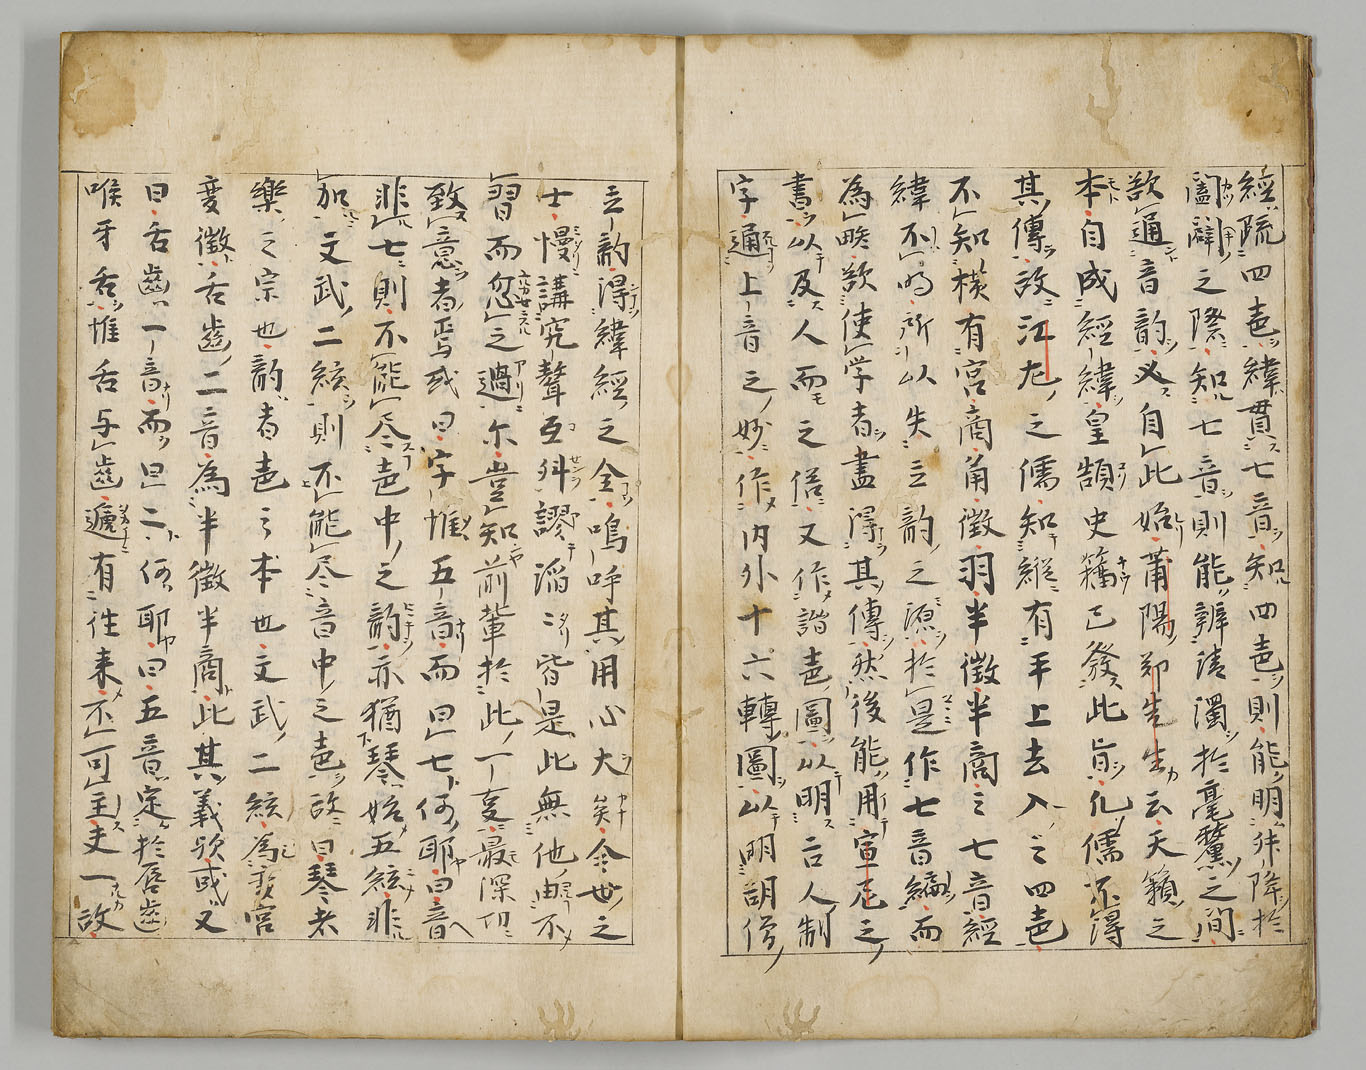 經疏四声緯貫七音知四声則能明升降於
闔闢之際知七音則能辨清濁於毫釐之間
欲通音韵又自此始莆陽郑先生云天籟之
本自成經緯皇頡史籀已發此㫖凡儒不得
其傳故江左之儒知縱有平上去入之四声
不知橫有宮商角徵羽半徵半商之七音經
緯不明所以失立韵之源於是作七音編而
為略欲使学者盡得其傳然後能用宣尼之
書以及人而之俗又作諧声圖以明古人制
字通上音之妙作内外十六轉圖以明胡僧
立韵得緯經之全鳴呼其用心大矣今世之
士慢講究聲互舛謬滔〻皆是此無他由不
習而忽之過尓豈知前輩於此一支最深切
致意者焉或曰字惟五音而曰七何耶曰音
非七則不能尽声中之韵亦猶琴始五絃非
加文武二絃則不能尽音中之声故曰琴者
樂之宗也韵者声之本也文武二絃為变宮
变徵舌齒二音為半徵半商此其義欤或又
曰舌齒一音而曰二何耶曰五音定於唇齒
喉牙舌惟舌与齒遞有往来不可主夫一故